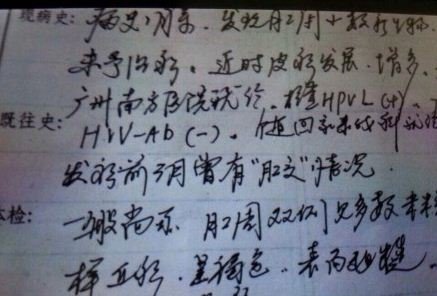 现病史: 病史1月余. 发现肛周十数新生物.
未予治疗. 近时皮疹发展. 增多.
广州南方医院就诊. 检查HPVL (+).
既往史: HIV-Ab (-).
发疹前3月曾有"肛交"情况.
体检: 一般尚可. 肛周双侧见多数
样丘疹. 呈褐色. 表面粗糙.